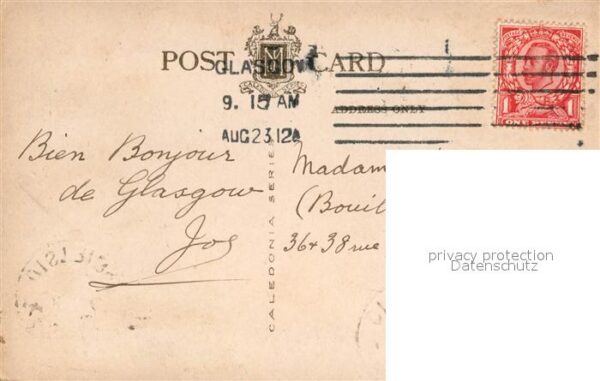 POST CARD
GLASGOW
9. 15 AM
AUG 23 12
ADDRESS ONLY
Bien Bonjour
de Glasgow
Jos
CALEDONIA SERIES
Madam
(Bouil
36+38 rue
privacy protection
Datenschutz
1 1
ONE PENNY